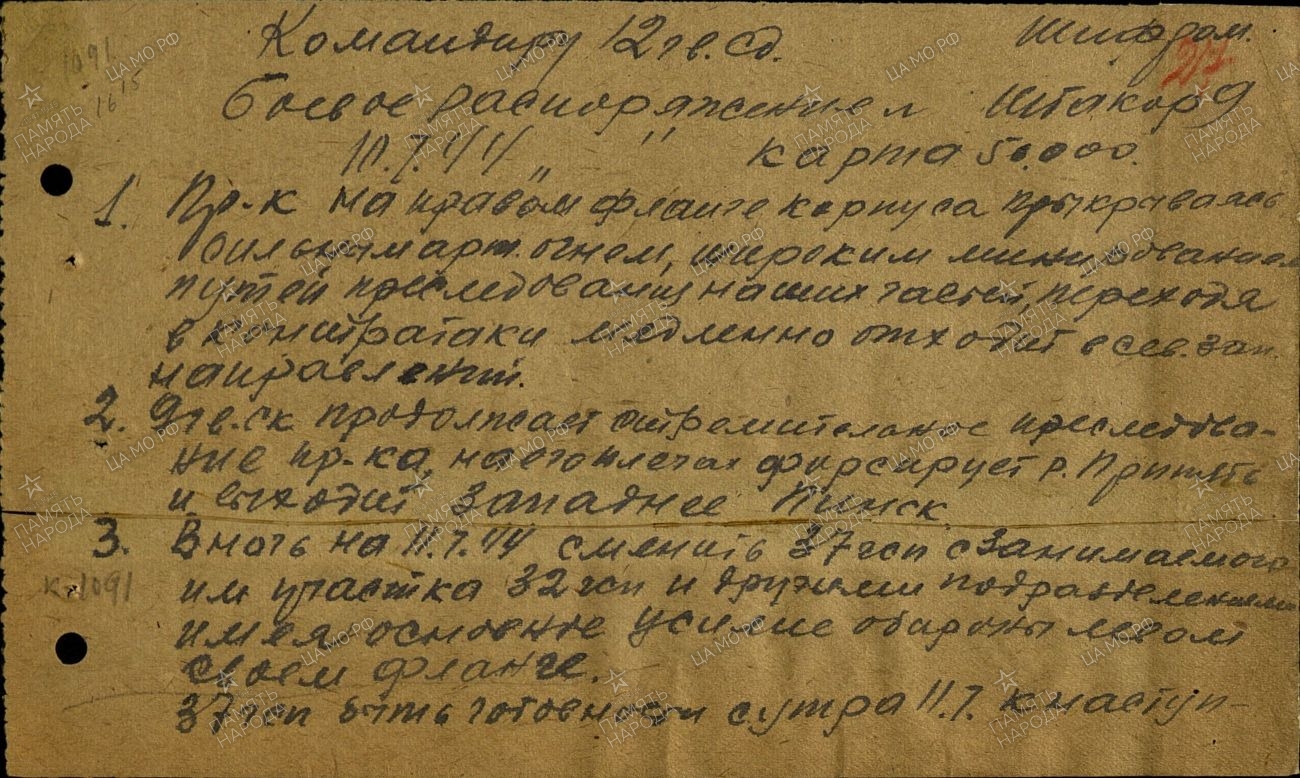 Командиру 12 гв.сд. Шифром.
217
1091
1615
Боевое распоряжение Штакор 9
10.7.44 " " карта 50.000.
1. Пр-к на правом фланге корпуса прикрываясь
сильным арт.огнем, широким минированием
путей преследования наших частей, переходя
в контратаки медленно отходит в сев.зап.
направлении.
2. 9 гв.ск продолжает стремительное преследова-
ние пр-ка, на его плечах форсирует р. Припять
и выходит западнее Пинск.
3. В ночь на 11.7.44 сменить 37 гсп с занимаемого
к-1091
им участка 32 гсп и другими подразделениями
имея основное усилие обороны левом
своем фланге.
37 гсп быть готовности с утра 11.7. к наступ-
ЦА МО РФ
ПАМЯТЬ НАРОДА